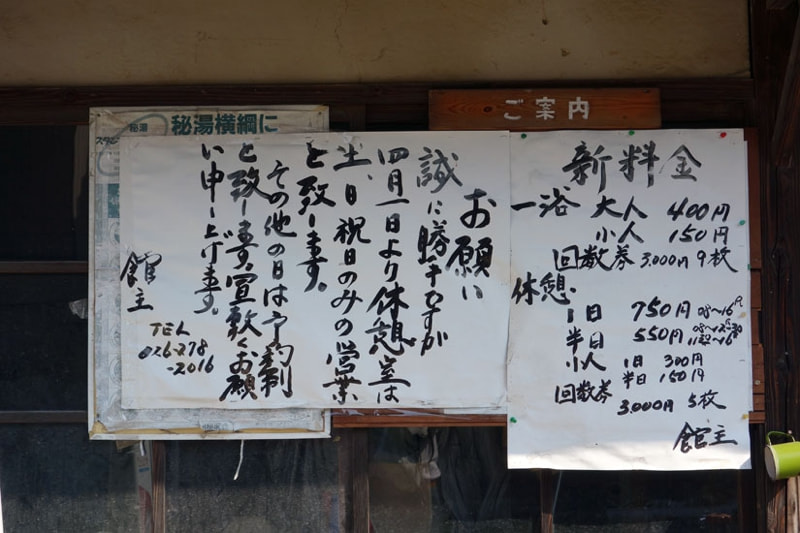 ご案内
秘湯
秘湯横綱に
お願い
誠に勝手ですが
四月一日より休憩室は
土、日、祝日のみの営業
と致します。
その他の日は予約制
と致します。宜敷くお願
い申し上げます。
館主
TEL
026-278
-2016
新料金
一浴 大人 400円
小人 150円
回数券 3,000円 9枚
休憩.
1日 750円 08〜16
半日 550円
小人 1日 300円
半日 150円
回数券
3,000円 5枚
館主